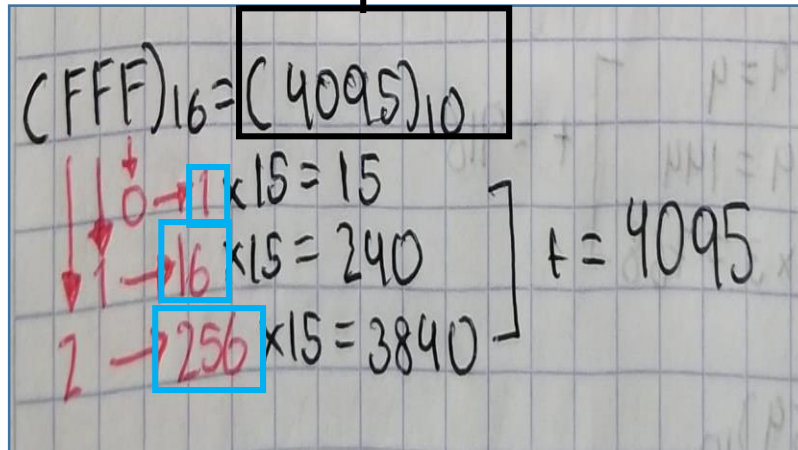 (FFF)16=(4095)10
0→1×15=15
1→16×15=240
2→256×15=3840
t=4095